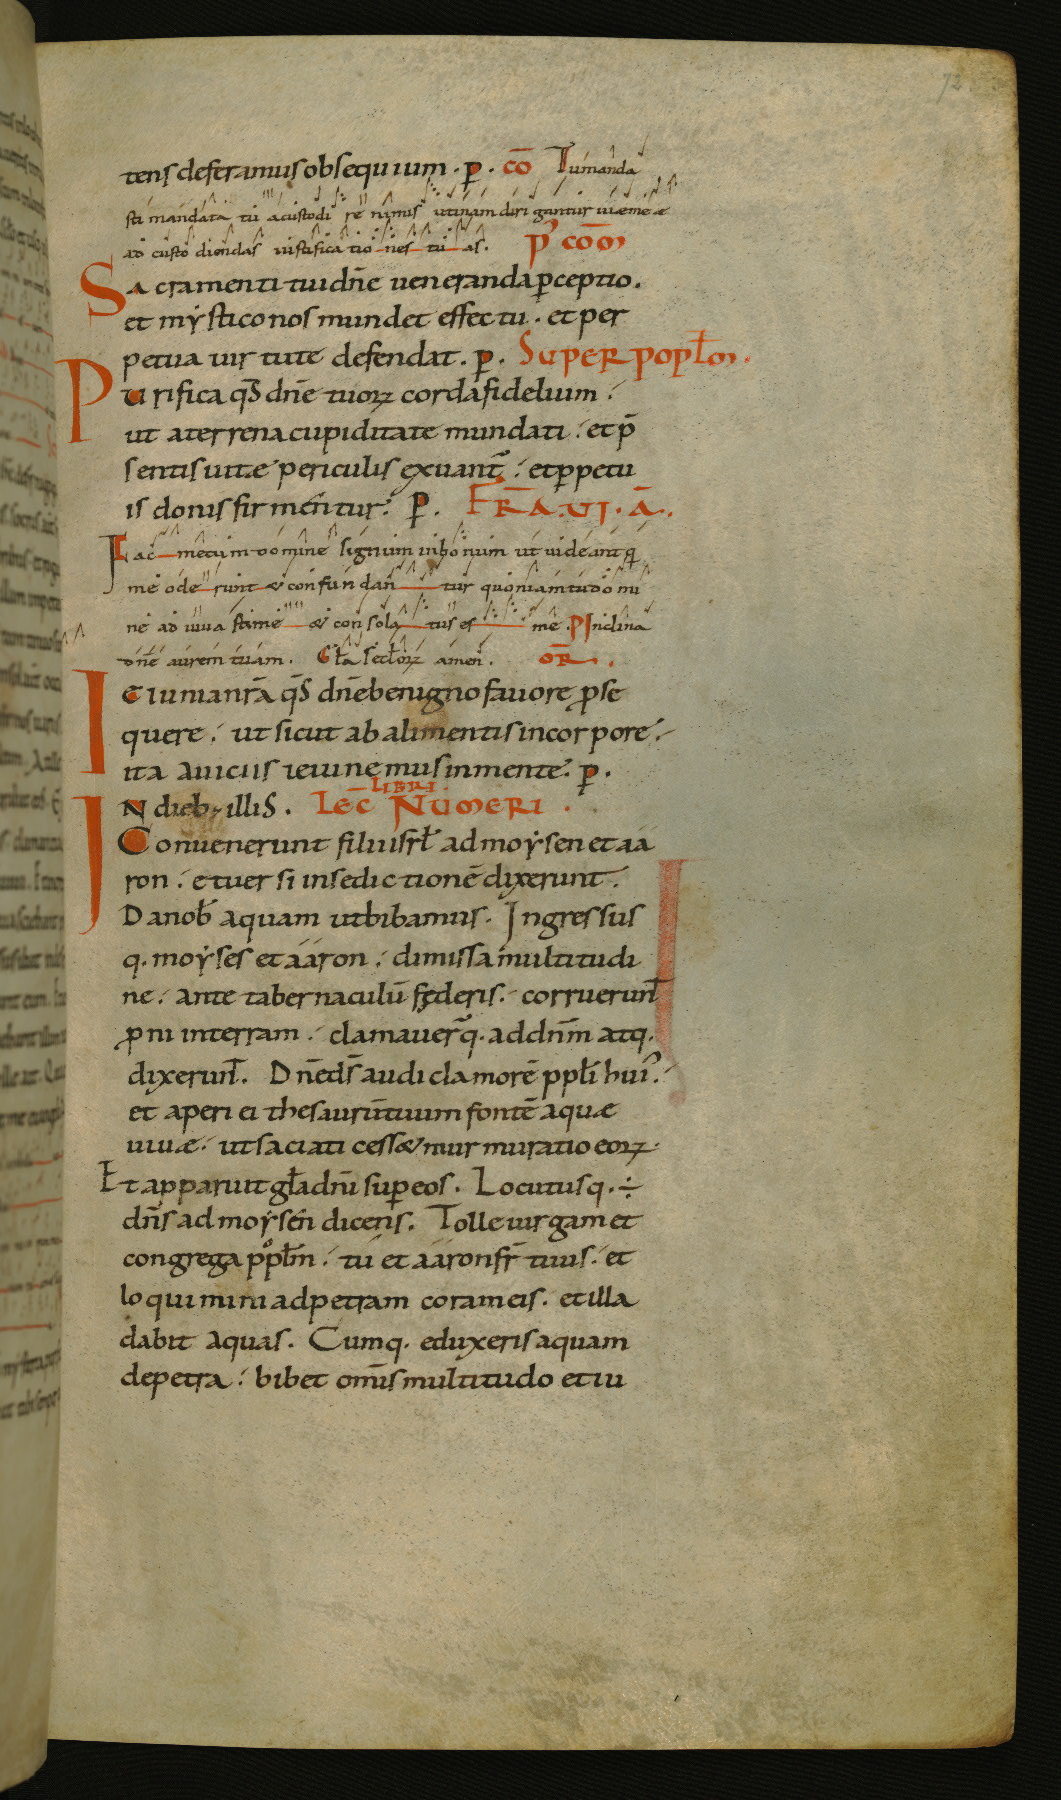 72
tens deferamus obsequium . p̄ . cō Tu manda
sti mandata tu a custodi re nimis utinam diri gantur uiæ meæ
ad custo diendas iustifica tio nes tu as . p' cōm
Sacramenti tui dn̄e ueneranda p̄ceptio .
et mẏstico nos mundet effectu . et per
petua uirtute defendat . p̄ . Super popl̄m .
Purifica qs̄ dn̄e tuorꝝ corda fidelium :
ut a terrena cupiditate mundati : et p̄
sentis uitæ periculis exuant᷑ : et ꝑpetu
is donis firmentur . p̄ . FR̄A . VI . Ā .
Fac mecum domine signum in bonum ut uideant q
me oderunt & confun dan tur quoniam tu domi
ne ad iuua sti me & con sola tus es me . Ps Inclina
dn̄e aurem tuam . Gl̄a secl̄orꝝ amen . OR̄ .
Ieiunia nr̄a qs̄ dn̄e benigno fauore ꝓse
quere : ut sicut ab alimentis in corpore :
ita a uiciis ieiunemus in mente . p̄ .
LIBRI
IN dieb; illis . Lec̄ NUMERI .
Conuenerunt filii isrl̄ ad moẏsen et aa
ron : et uersi in sedictionē dixerunt :
Da nob̄ aquam ut bibamus . Ingressus
q . moẏses et aaron : dimissa multitudi
ne : ante tabernaculū fęderis : corruerun̄
ꝓni in terram : clamauer̄q . ad dn̄m atq .
dixerun̄ . Dn̄e ds̄ audi clamorē ppl̄i hui' :
et aperi ei thesaurū tuum fontē aquæ
uiuæ : ut saciati cess&mur muratio eorꝝ .
Et apparuit gl̄a dn̄i sup̄ eos . Locutusq . ÷
dn̄s ad moẏsen dicens . Tolle uirgam et
congrega ppl̄m : tu et aaron fr̄ tuus : et
loquimini ad petram coram eis . et illa
dabit aquas . Cumq . eduxeris aquam
de petra : bibet om̄is multitudo et iu